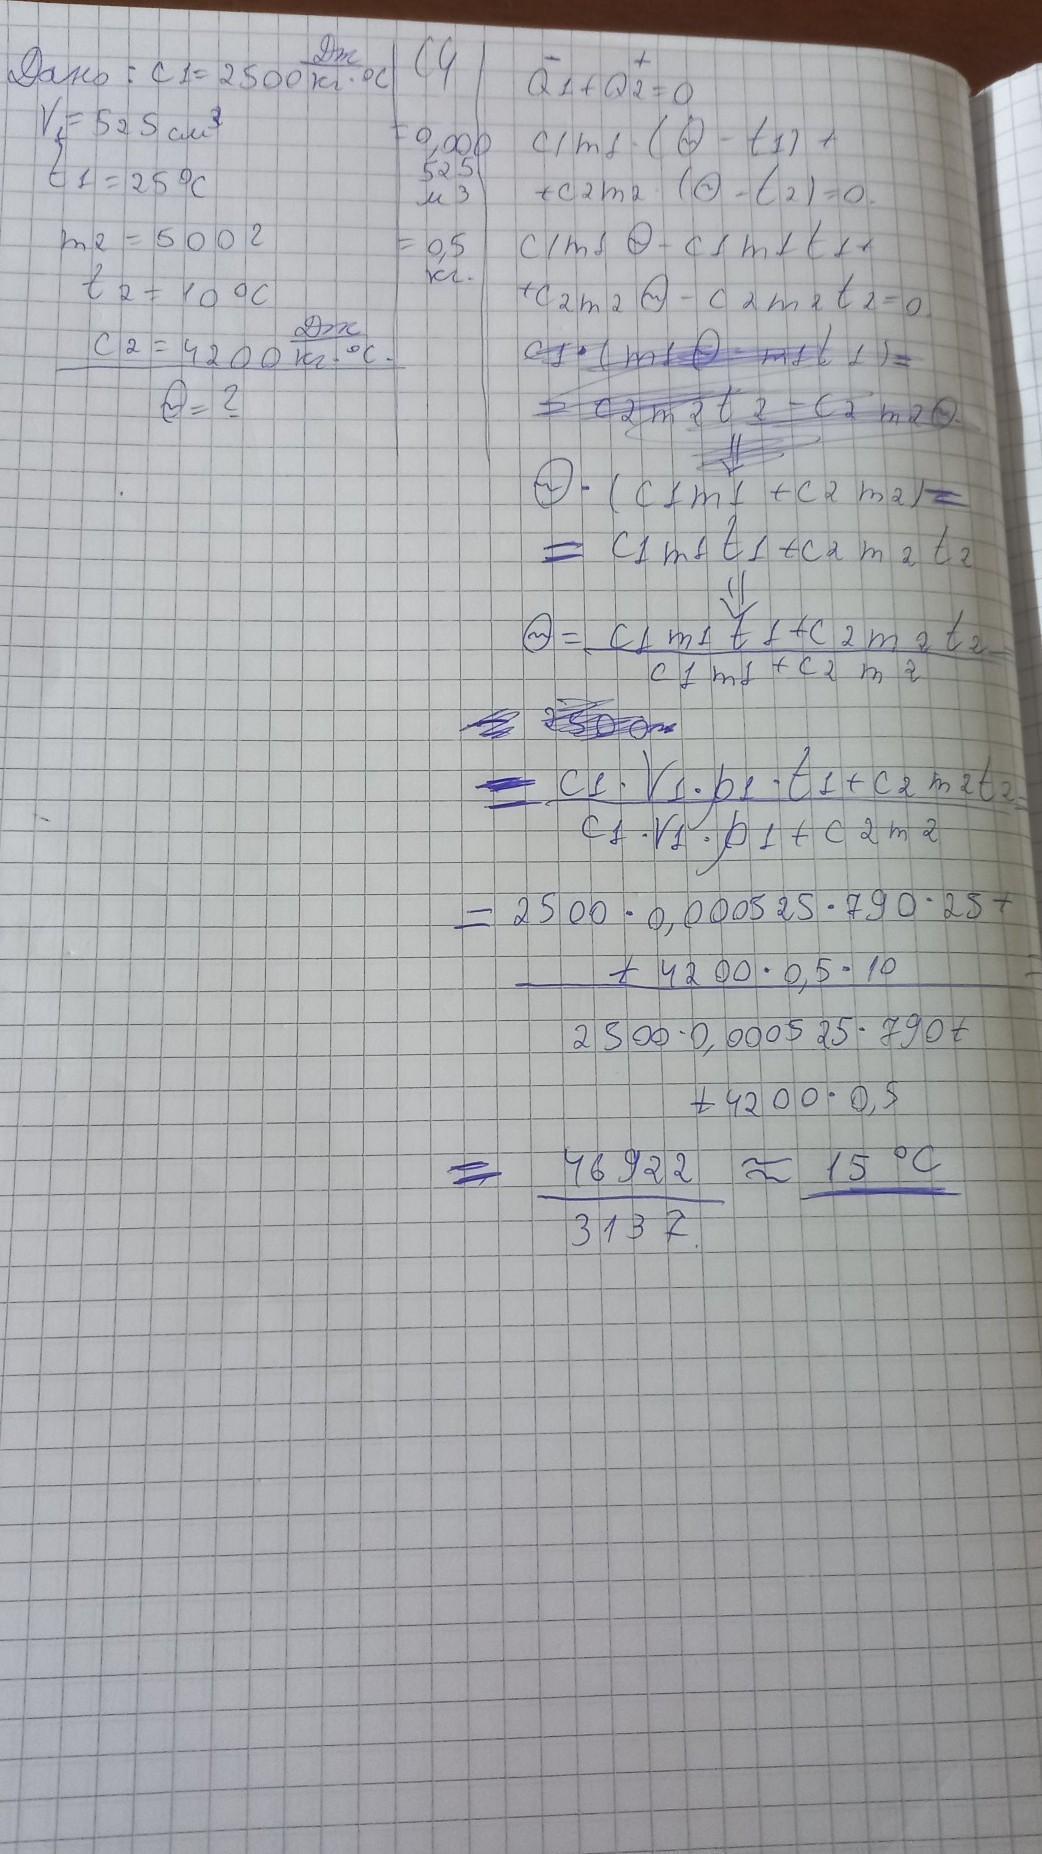 Дано: c1=2500 Дж/кг·°C
V1=525 см³
t1=25°C
m2=500г
t2=10°C
c2=4200 Дж/кг·°C.
Θ=?
СИ
=0,000
525
м3
=0,5
кг.
- +
Q1+Q2=0
c1m1·(Θ-t1)+
+c2m2·(Θ-t2)=0.
c1m1Θ-c1m1t1+
+c2m2Θ-c2m2t2=0
c1·(m1Θ-m1t1)=
=c2m2t2-c2m2Θ.
⇓
Θ·(c1m1+c2m2)=
=c1m1t1+c2m2t2
⇓
Θ= c1m1t1+c2m2t2 =
c1m1+c2m2
= 2500
= c1·V1·ρ1·t1+c2m2t2 =
c1·V1·ρ1+c2m2
=2500·0,000525·790·25+
+4200·0,5·10 =
2500·0,000525·790+
+4200·0,5
= 46922 ≈ 15°C
3137.